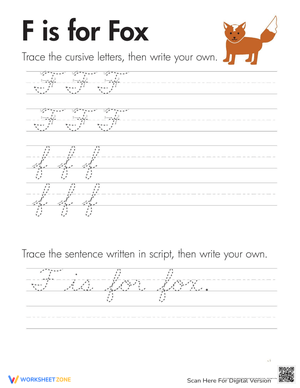 F is for Fox
Trace the cursive letters, then write your own.
F F F
F F F
f f f
f f f
Trace the sentence written in script, then write your own.
F is for fox.
WORKSHEETZONE
Scan Here For Digital Version